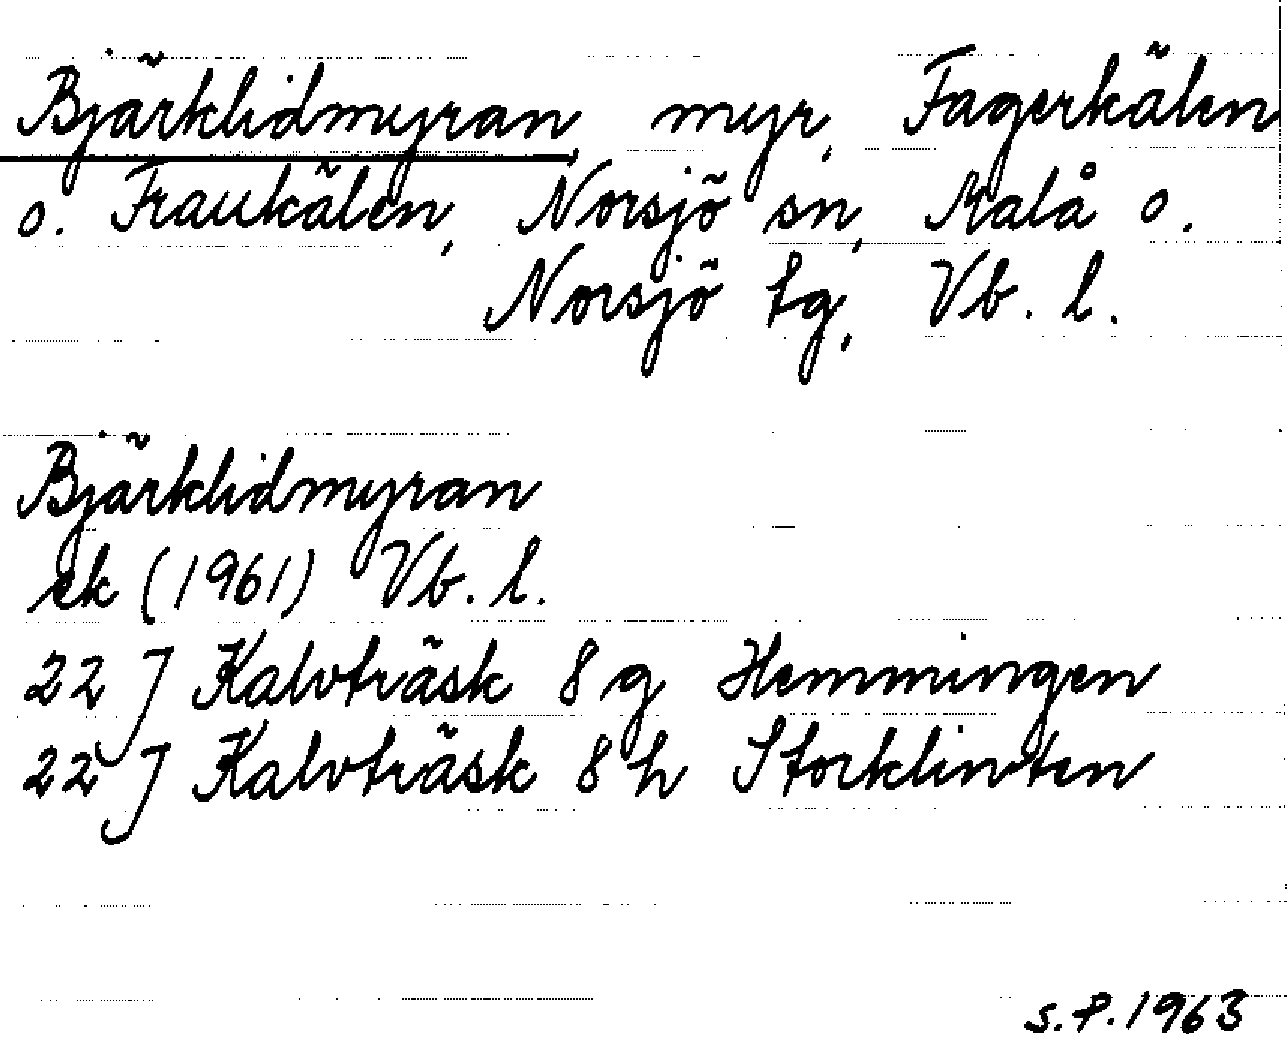 Bjärklidmyran, myr, Fagerkälen
o. Fraukälen, Norsjö sn, Malå o.
Norsjö tg, Vb. l.
Bjärklidmyran
ek (1961) Vb. l.
22 J Kalvträsk 8 g Hemmingen
22 J Kalvträsk 8 h Storklinten
s. f. 1963